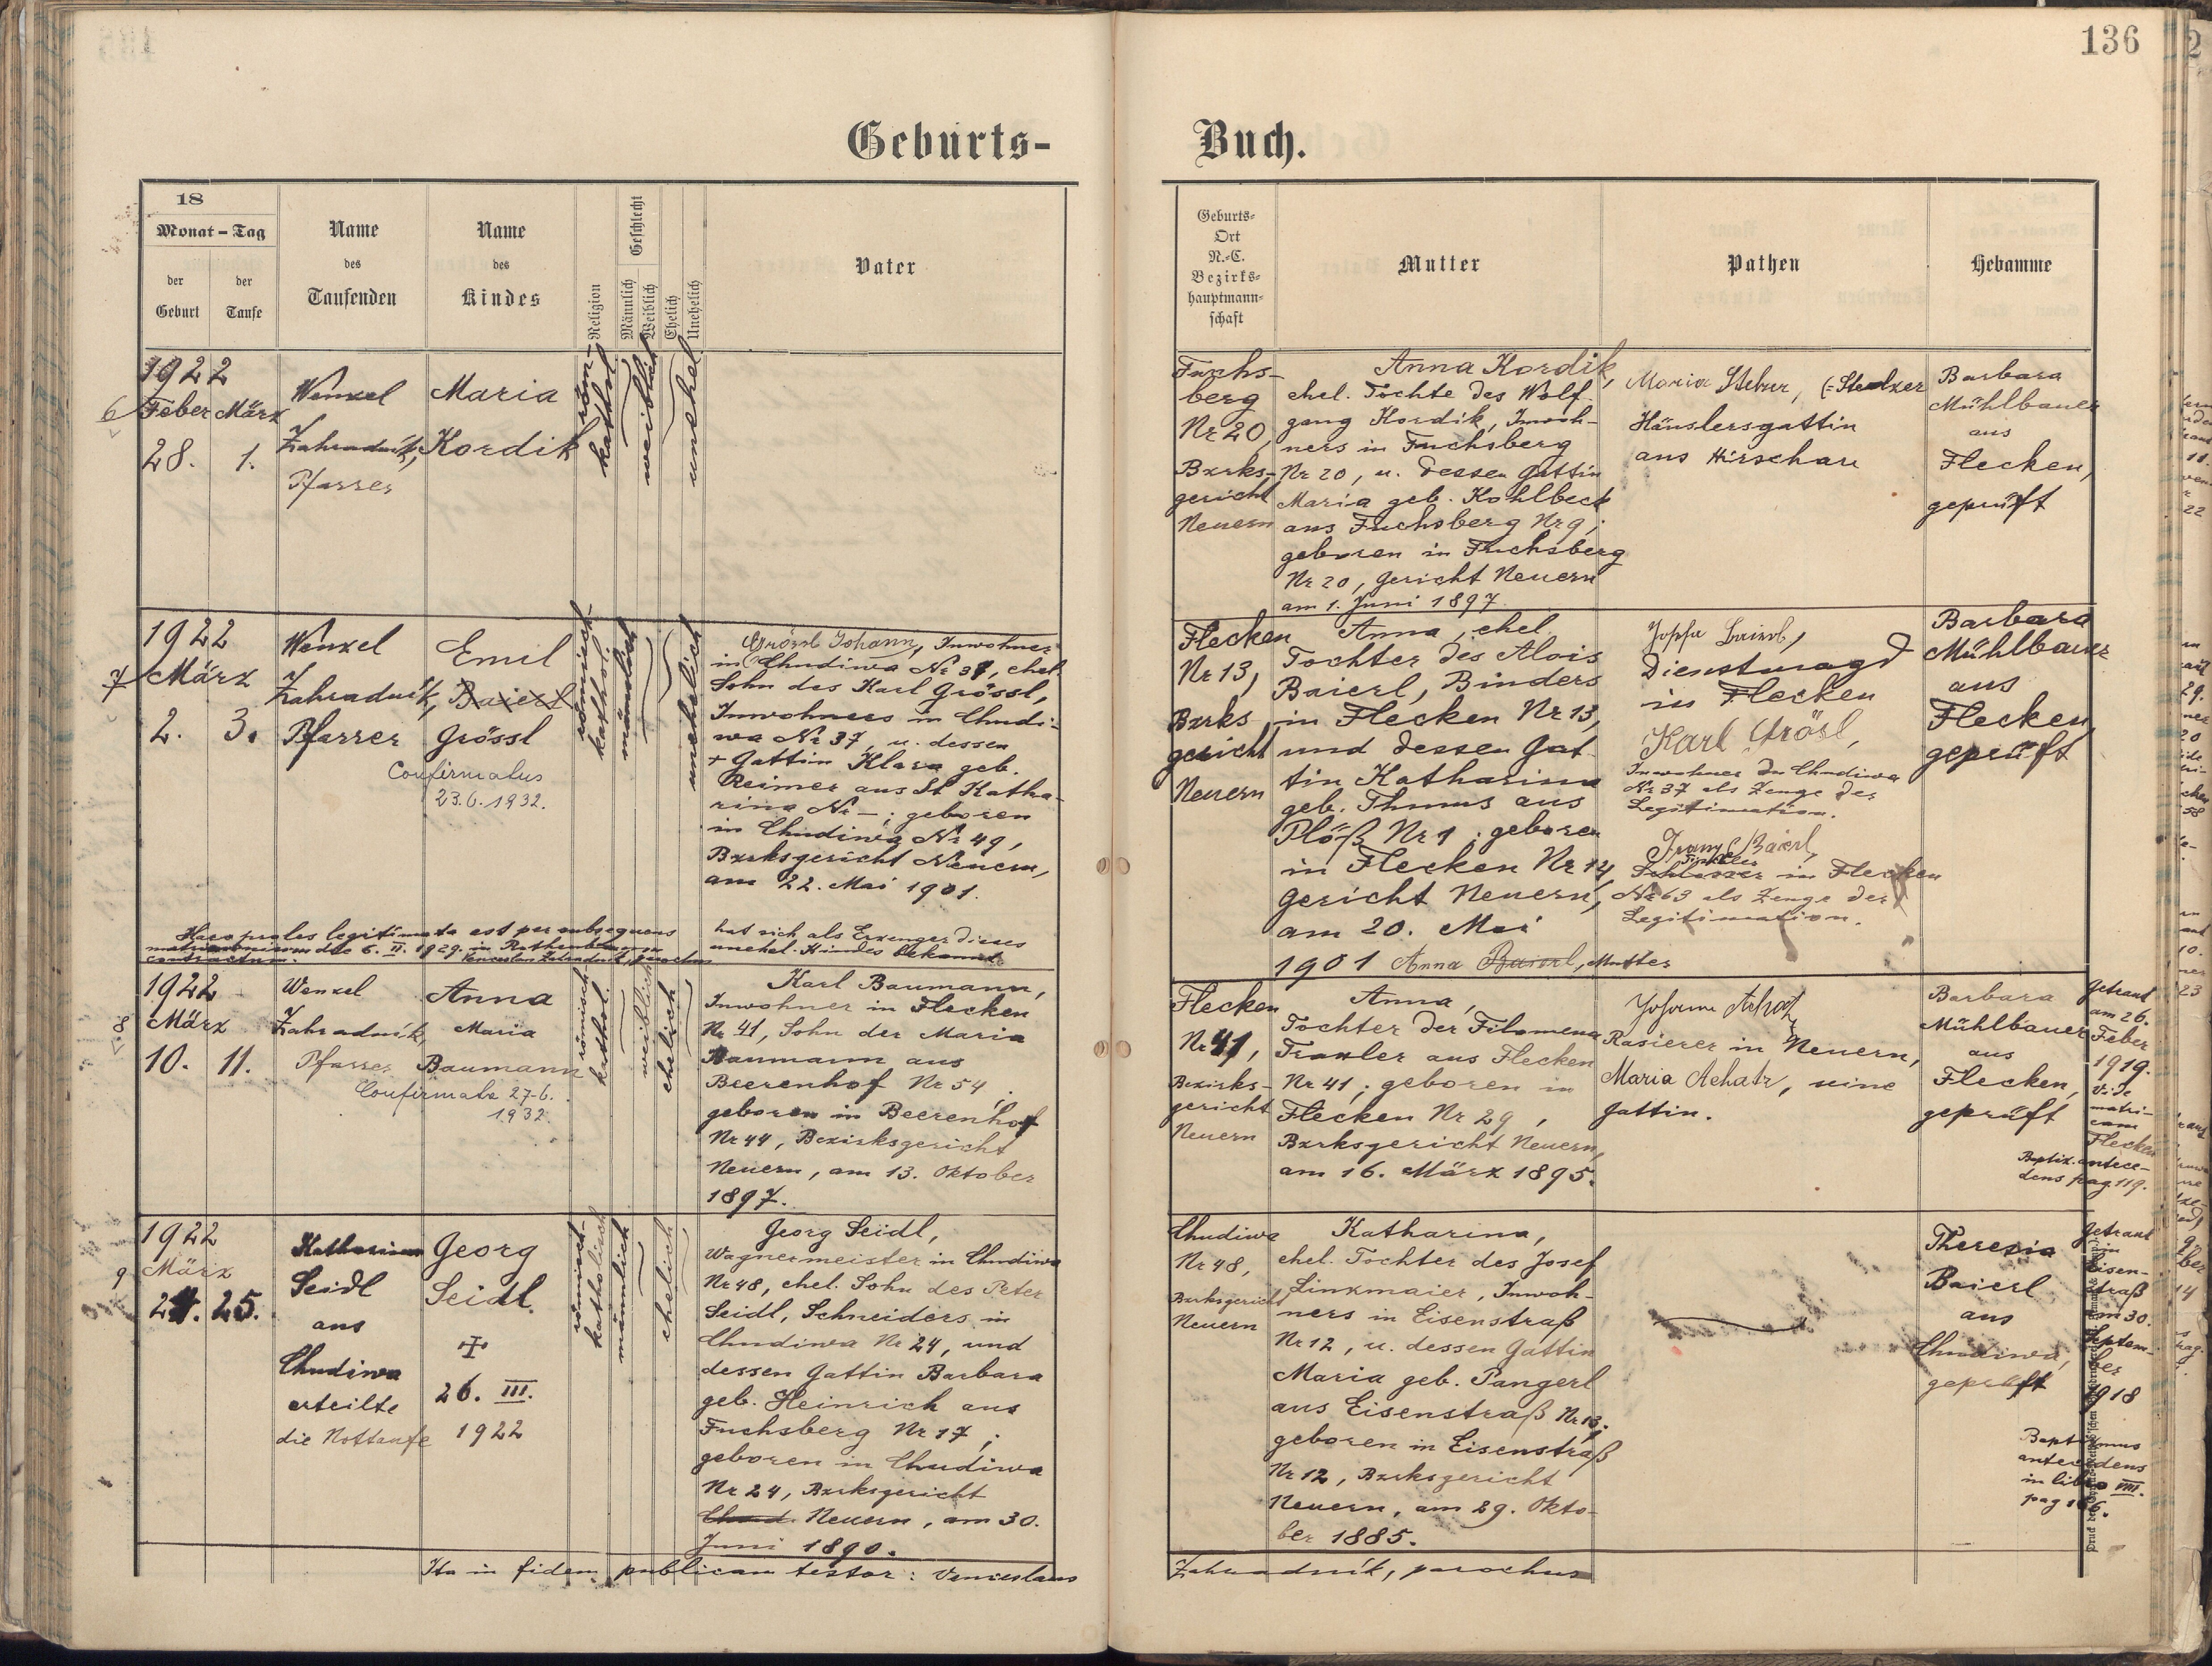 136
Geburts-
Buch.
18
Monat - Tag
der
Geburt
der
Taufe
Name
des
Taufenden
Name
des
Kindes
Religion
Geschlecht
Männlich
Weiblich
Ehelich
Unehelich
Vater
Geburts-
Ort
N.-C.
Bezirks-
hauptmann-
schaft
Mutter
Pathen
Hebamme
6
1922
Feber März
28. 1.
Wenzel
Zahradník,
Pfarrer
Maria
Kordik
röm-
kathol
weiblich
unehel
Fuchs-
berg
Nr 20,
Bzrks-
gericht
Neuern
Anna Kordik,
ehel. Tochte des Wolf-
gang Kordik, Inwoh-
ners in Fuchsberg
Nr 20, u. dessen Gattin
Maria geb. Kohlbeck
aus Fuchsberg Nr 9;
geboren in Fuchsberg
Nr 20, Gericht Neuern
am 1. Juni 1897.
Maria (=Stelzer
Häuslersgattin
aus Hirschau
Barbara
Mühlbauer
aus
Flecken,
geprüft
7
1922
März
2. 3.
Wenzel
Zahradník,
Pfarrer
Emil
Baierl
Grössl
Confirmatus
23.6.1932.
römisch-
kathol.
männlich
unehelich
Grössl Johann, Inwohner
in Chudiwa Nr 37, ehel.
Sohn des Karl Grössl,
Inwohners in Chudi-
wa Nr 37, u. dessen
+ Gattin Klara geb.
Reimer aus St Katha-
rina Nr –; geboren
in Chudiwa Nr 49,
Bzrksgericht Neuern,
am 22. Mai 1901.
hat sich als Erzeuger dieses
unehel. Kindes bekannt
Haec proles legitimata est per subsequens
matrimonium die 6. II. 1929. in
contractum. Venceslaus Zahradník, parochus
Flecken
Nr 13,
Bzrks
gericht
Neuern
Anna, ehel.
Tochter des Alois
Baierl, Binders
in Flecken Nr 13,
und dessen Gat-
tin Katharina
geb. Thums aus
Plöß Nr 1; geboren
in Flecken Nr 14,
Gericht Neuern,
am 20. Mai
1901 Anna Baierl, Mutter
Josefa Baierl,
Dienstmagd
in Flecken
Karl Grösl,
Inwohner in Chudiwa
Nr 37 als Zeuge der
Legitimation.
Franz Baierl,
in Flecken
Nr 63 als Zeuge der
Legitimation.
Barbara
Mühlbauer
aus
Flecken,
geprüft
8
1922
März
10. 11.
Wenzel
Zahradník,
Pfarrer
Anna
Maria
Baumann
Confirmata 27.6.
1932.
römisch-
kathol.
weiblich
ehelich
Karl Baumann,
Inwohner in Flecken
Nr 41, Sohn der Maria
Baumann aus
Beerenhof Nr 54,
geboren in Beerenhof
Nr 44, Bezirksgericht
Neuern, am 13. Oktober
1897.
Flecken
Nr 41,
Bezirks-
gericht
Neuern
Anna,
Tochter der Filomena
Traxler aus Flecken
Nr 41; geboren in
Flecken Nr 29,
Bzrksgericht Neuern,
am 16. März 1895.
Johann Achatz
Rasierer in Neuern,
Maria Achatz, seine
Gattin.
Barbara
Mühlbauer
aus
Flecken,
geprüft
Getraut
am 26.
Feber
1919.
Vide
matri-
cam
Flecken
Baptiz. antece-
dens pag. 119.
9
1922
März
24. 25.
Katharina
Seidl
aus
Chudiwa
erteilte
die Nottaufe
Georg
Seidl
26. III.
1922
römisch-
katholisch
männlich
ehelich
Georg Seidl,
Wagnermeister in Chudiwa
Nr 48, ehel. Sohn des Peter
Seidl, Schneiders in
Chudiwa Nr 24, und
dessen Gattin Barbara
geb. Heinrich aus
Fuchsberg Nr 17;
geboren in Chudiwa
Nr 24, Bzrksgericht
Chud. Neuern, am 30.
Juni 1890.
Chudiwa
Nr 48,
Bzrksgericht
Neuern
Katharina,
ehel. Tochter des Josef
Linzmaier, Inwoh-
ners in Eisenstraß
Nr 12, u. dessen Gattin
Maria geb. Pangerl
aus Eisenstraß Nr 13;
geboren in Eisenstraß
Nr 12, Bzrksgericht
Neuern, am 29. Okto-
ber 1885.
Theresia
Baierl
aus
Chudiwa,
geprüft
Getraut
in
Eisen-
straß
am 30.
Septem-
ber
1918
Baptismus
antecedens
in libro VIII.
pag 166.
Ita in fidem publicam testor: Venceslaus
Zahradník, parochus